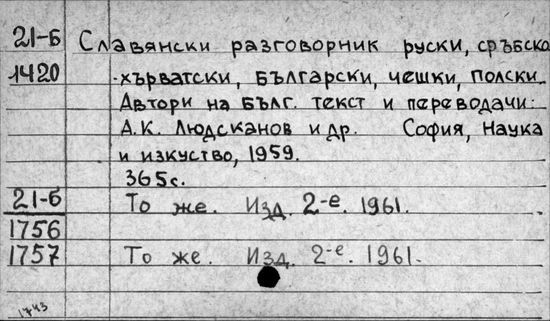 21-Б Славянски разговорник руски, сръбско
1420 -хърватски, български, чешки, полски.
Автори на бълг. текст и преводачи:
А.К. Людсканов и др. София, Наука
и изкуство, 1959.
365с.
21-б То же. Изд. 2-е. 1961.
1756
1757 То же. Изд. 2-е. 1961.
1743